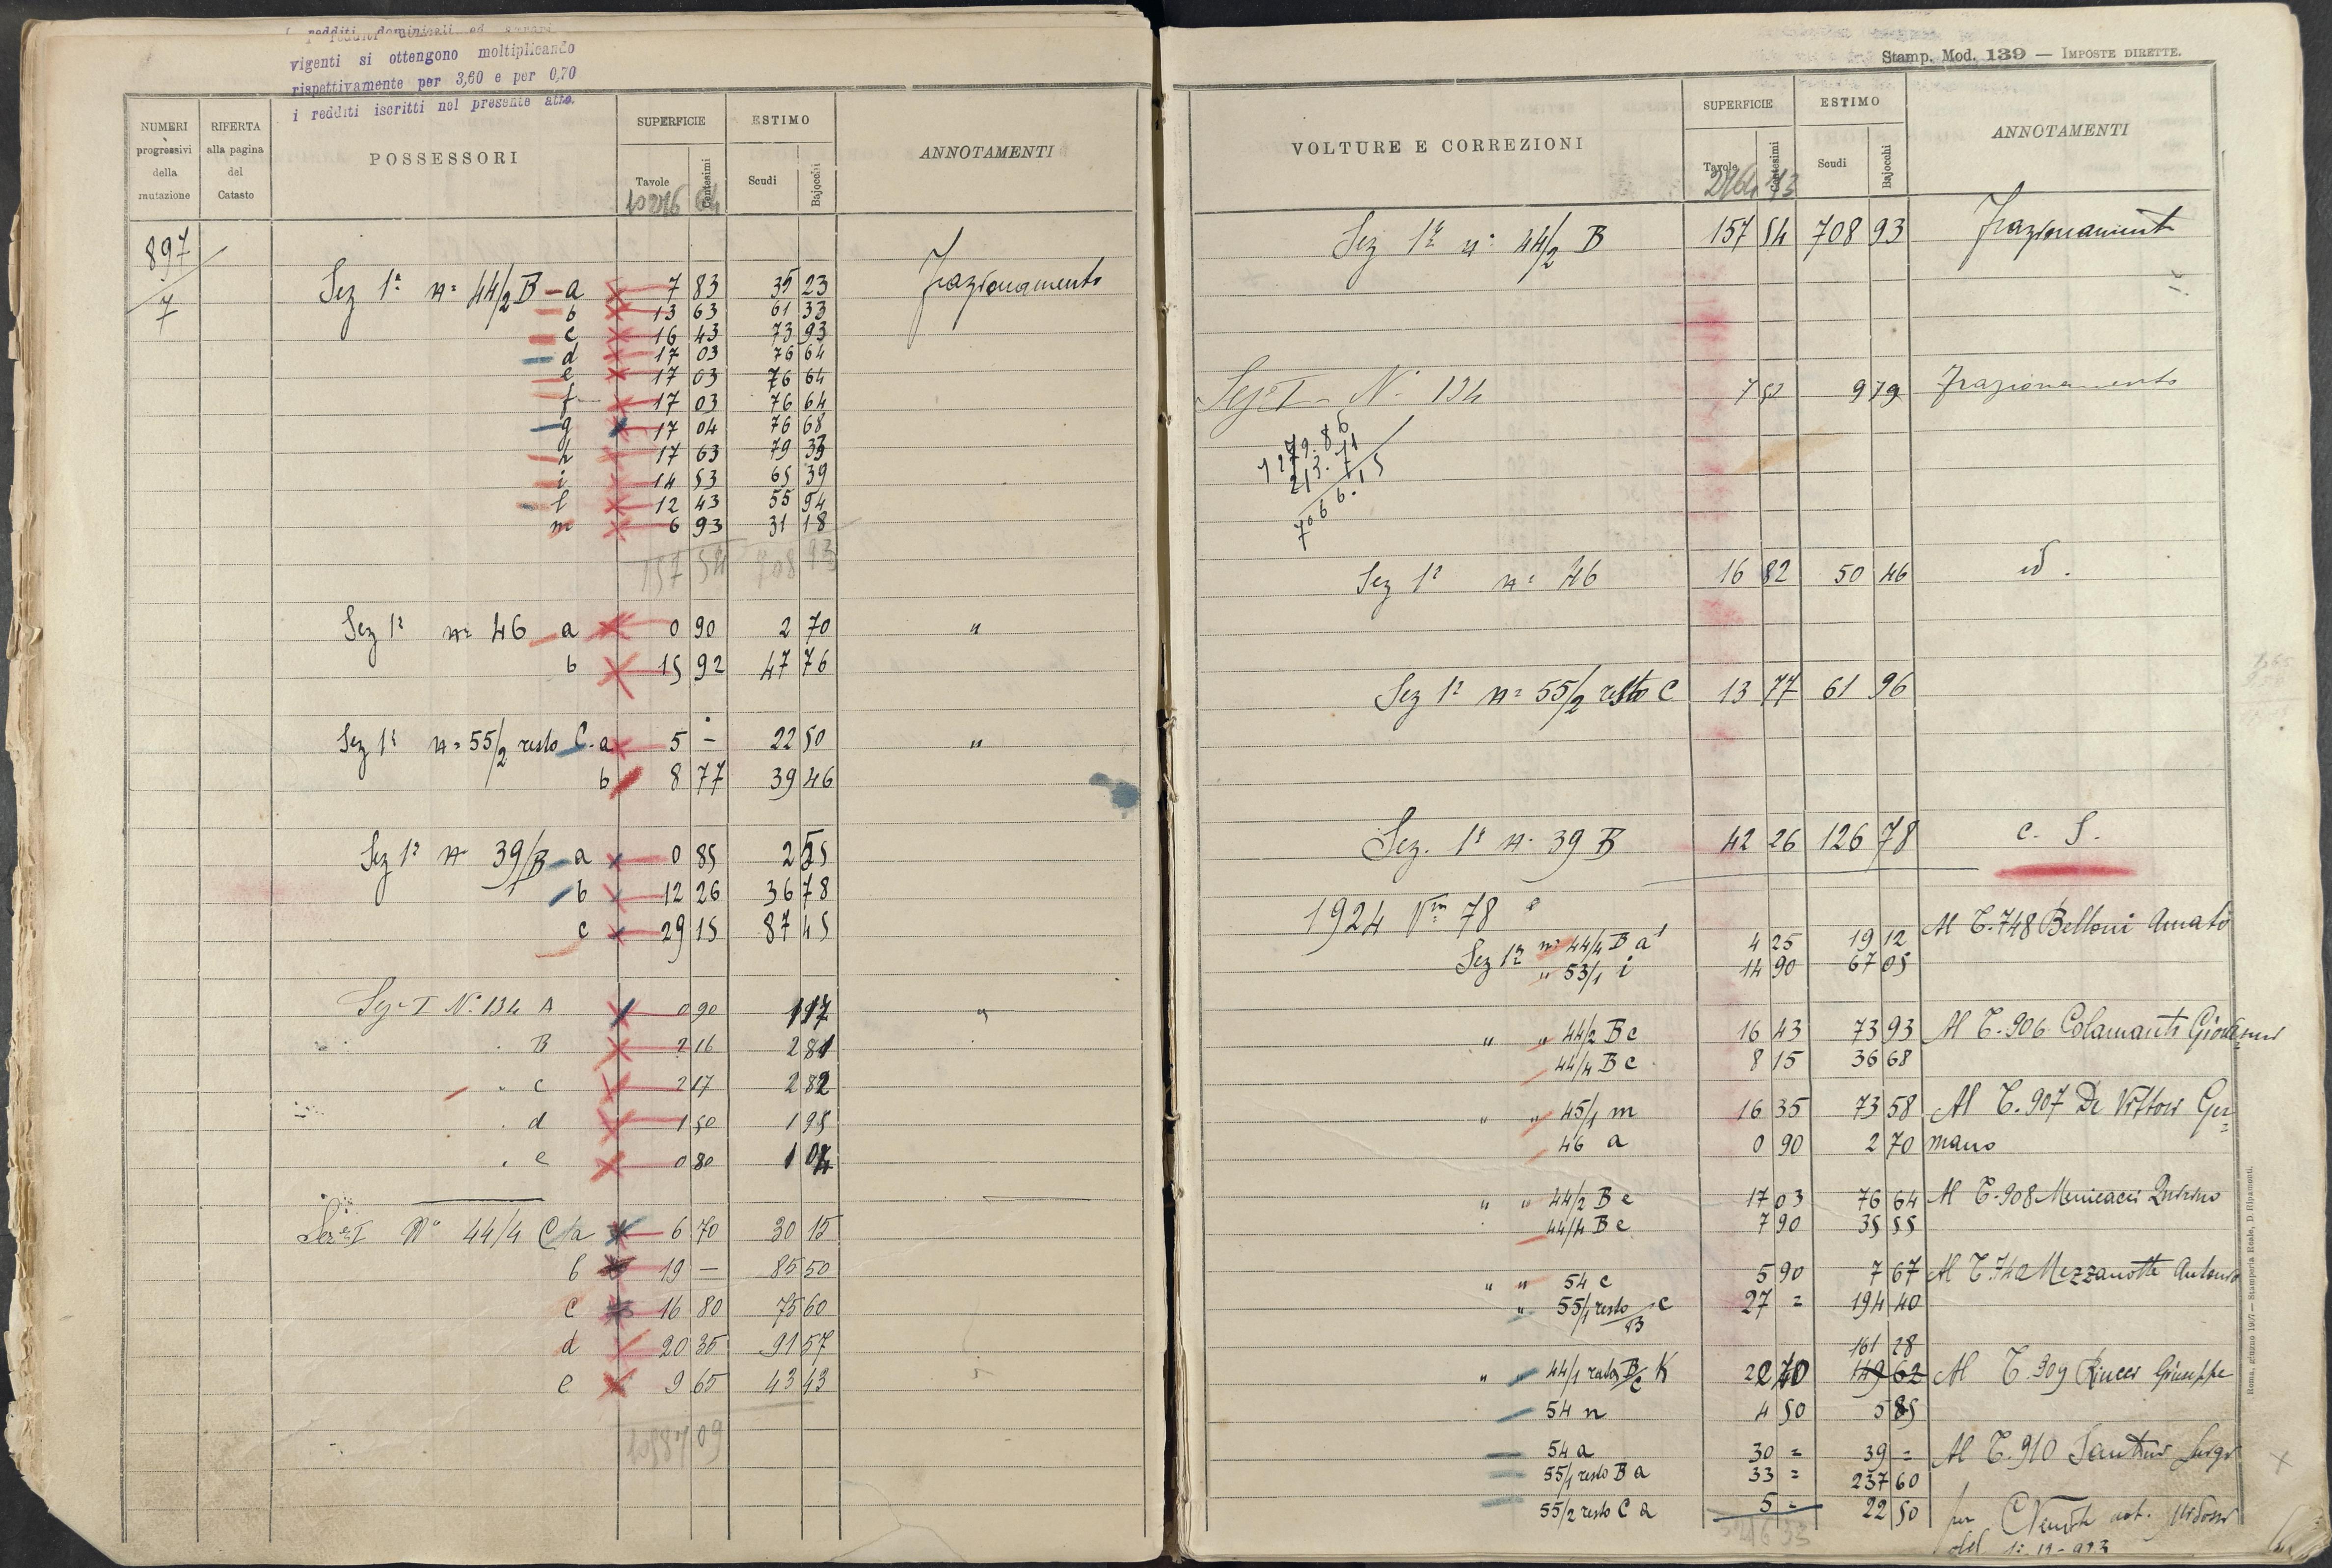 vigenti si ottengono moltiplicando
rispettivamente per 3,60 e per 0,70
i redditi iscritti nel presente atto.
NUMERI progressivi della mutazione
RIFERTA alla pagina del Catasto
POSSESSORI
SUPERFICIE
Tavole Centesimi
ESTIMO
Scudi Bajocchi
ANNOTAMENTI
897
7
Sez 1ª nº 44/2 B - a 7 83 35 23 frazionamento
b 13 63 61 33
c 16 43 73 93
d 17 03 76 64
e 17 03 76 64
f 17 03 76 64
g 17 04 76 68
h 17 63 79 33
i 14 53 65 39
l 12 43 55 94
m 6 93 31 18
157 54 708 93
Sez 1ª nº 46 a 0 90 2 70 "
b 15 92 47 76
Sez 1ª nº 55/2 resto C. a 5 - 22 50 "
b 8 77 39 46
Sez 1ª nº 39/B a 0 85 2 55
b 12 26 36 78
c 29 15 87 45
Sez I Nº 134 A 0 90 1 17 "
B 2 16 2 81
" c 2 17 2 82
d 1 50 1 95
e 0 80 1 04
Sez I Nº 44/4 C/a 6 70 30 15
b 19 - 85 50
c 16 80 75 60
d 20 35 91 57
e 9 65 43 43
Stamp. Mod. 139 — IMPOSTE DIRETTE.
VOLTURE E CORREZIONI
SUPERFICIE
Tavole Centesimi
ESTIMO
Scudi Bajocchi
ANNOTAMENTI
Sez 1ª nº 44/2 B 157 54 708 93 frazionamento
Sez I - Nº 134 9 79 frazionamento
1279.86
213.71
7066.15
Sez 1ª nº 46 16 82 50 46 id.
Sez 1ª nº 55/2 resto C 13 77 61 96
Sez. 1ª nº 39 B 42 26 126 78 c. S.
1924 Vra 78
Sez 1ª nº 44/4 B a 4 25 19 12 Al T. 748 Belloni Amato
" 53/1 i 14 90 67 05
" " 44/2 B c 16 43 73 93 Al T. 906 Colamanti
44/4 B c 8 15 36 68
" " 45/1 m 16 35 73 58 Al T. 907 De Vittori Ger=
46 a 0 90 2 70 mano
" " 44/2 B e 17 03 76 64 Al T. 908 Menicacci Quirino
44/4 B e 7 90 35 55
" " 54 c 5 90 7 67 Al T. 742 Mezzanotte Antonio
" 55/1 resto B c 27 = 194 40
161 28
" 44/1 resto B/c K 22 40 149 62 Al T. 909 Rincci Giuseppe
54 n 4 50 5 85
54 a 30 = 39 = Al T. 910
55/1 resto B a 33 = 237 60
55/2 resto C a 5 - 22 50 per
Roma, giugno 1907 — Stamperia Reale, D. Ripamonti.